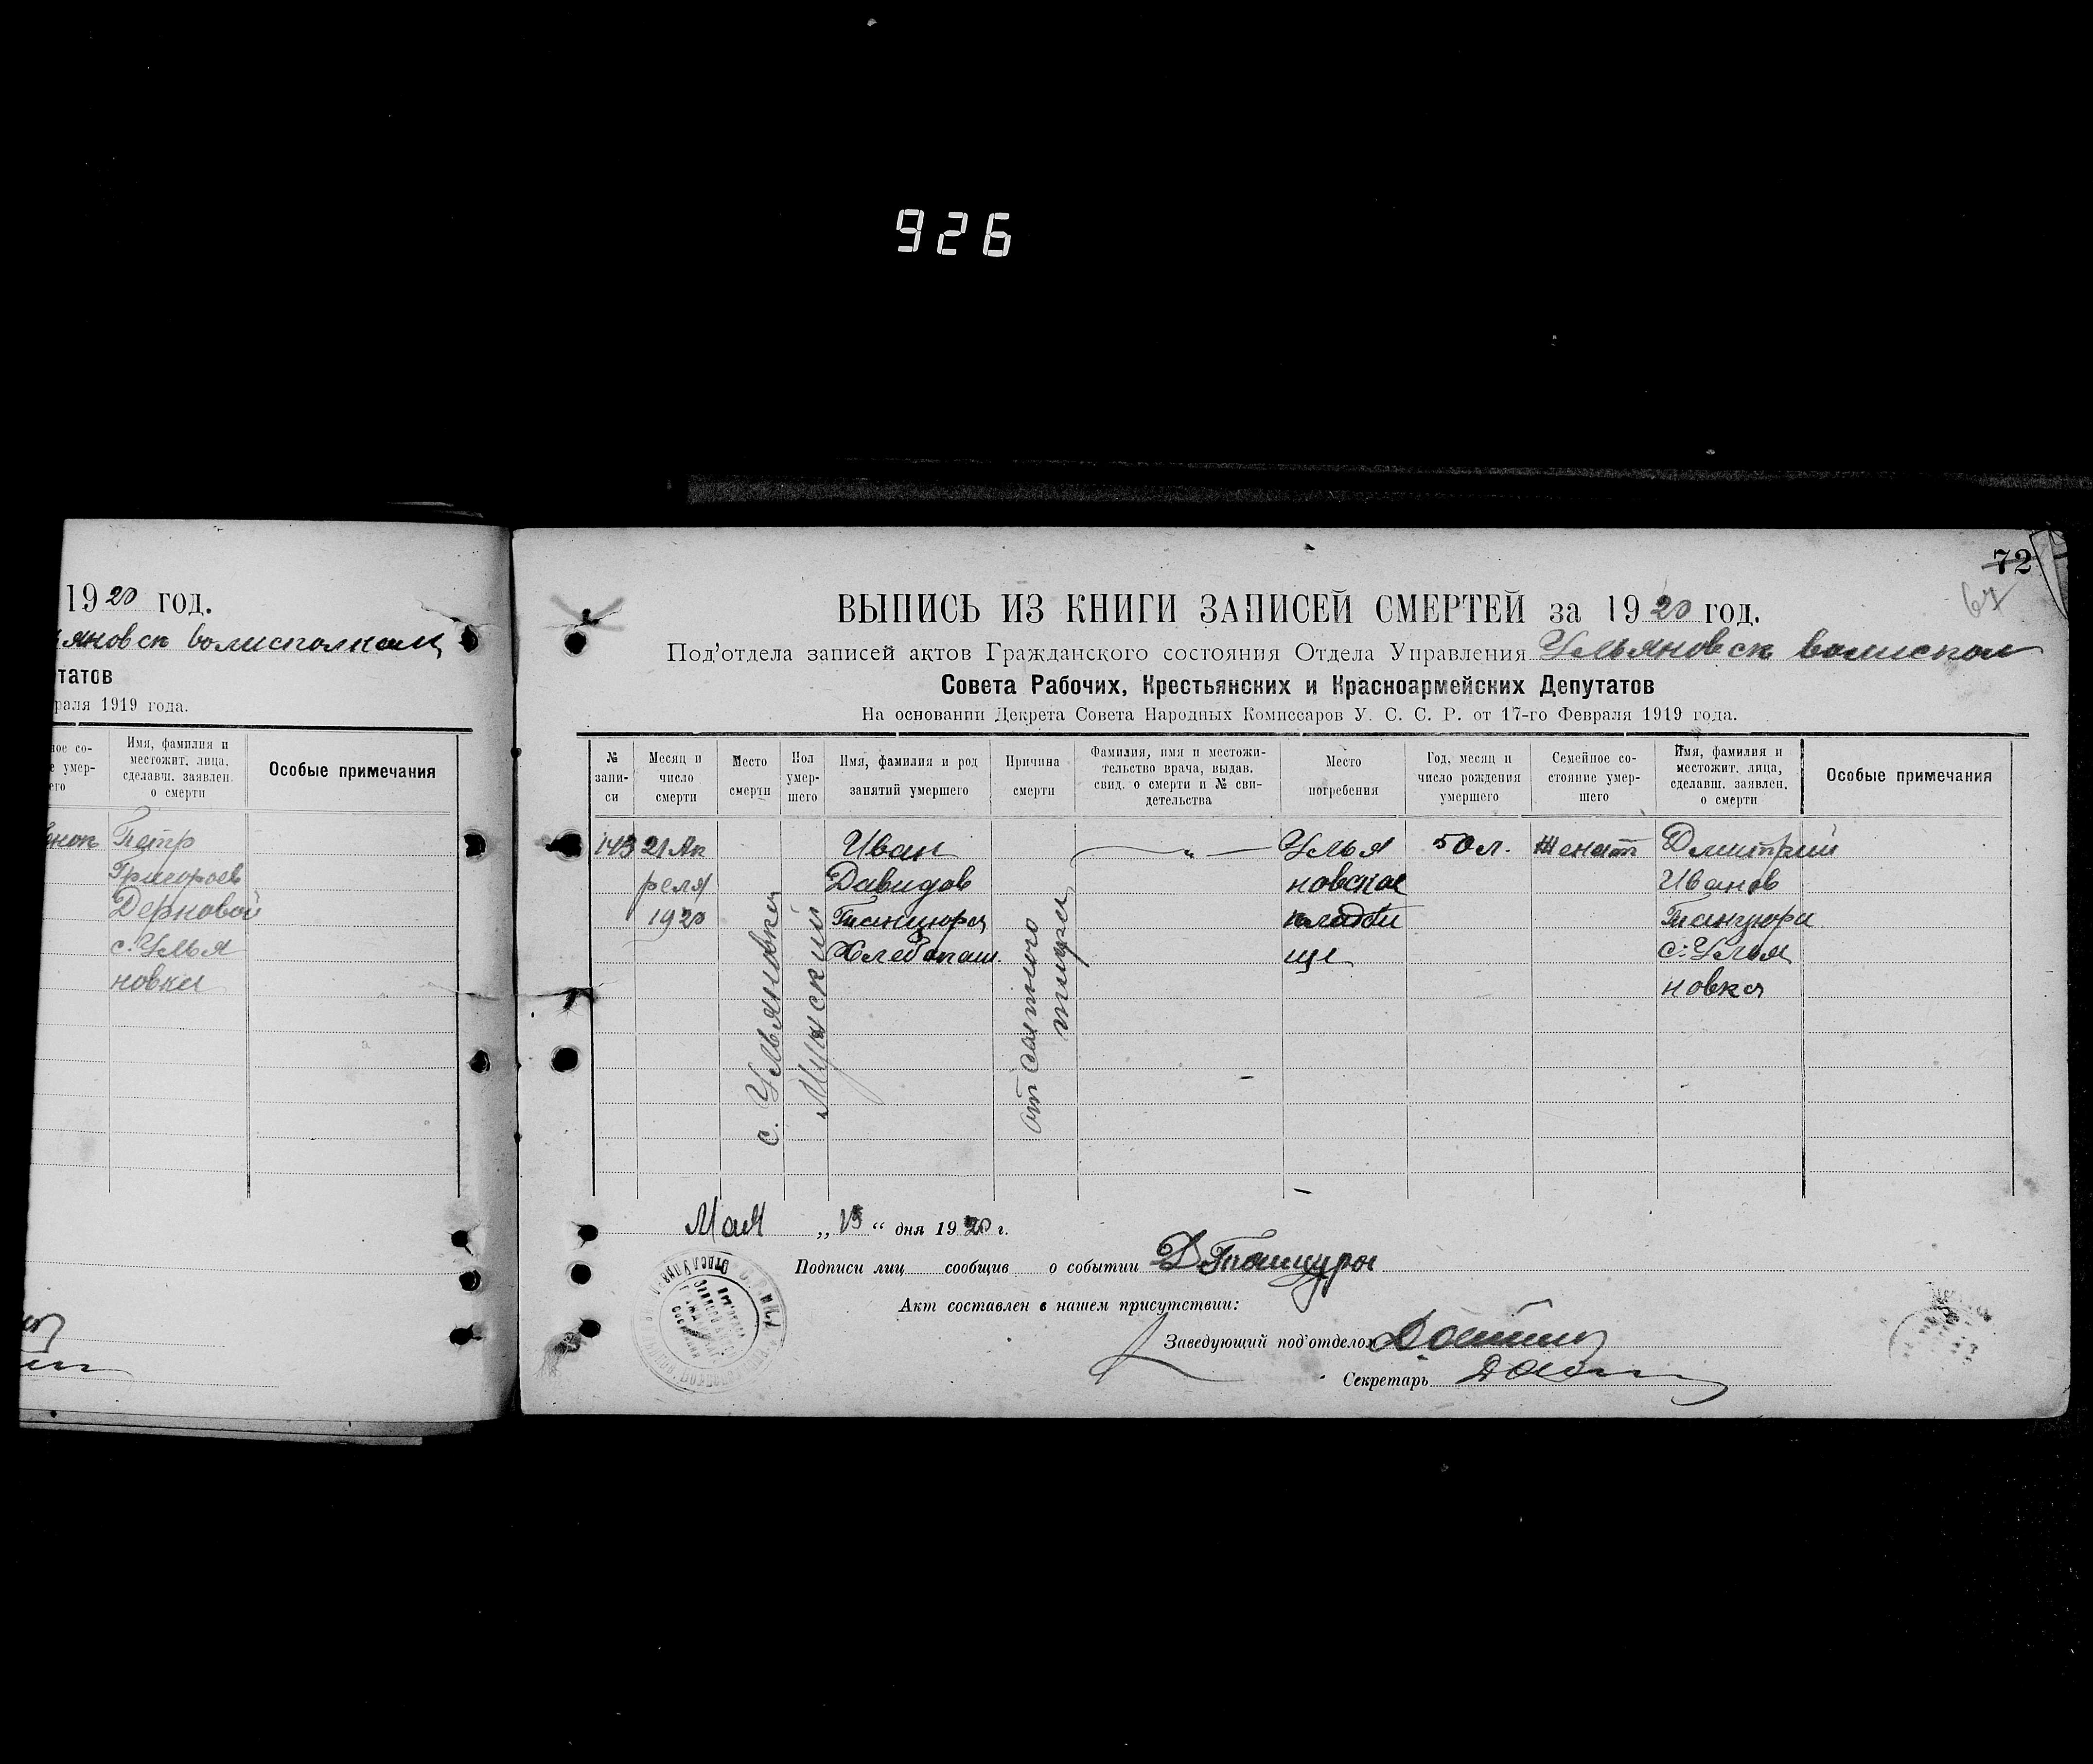 926
1920 год.
яновск волисполком
татов
раля 1919 года.
ное со-
е умер-
его
Имя, фамилия и
местожит. лица,
сделавш. заявлен.
о смерти
Особые примечания
Петр
Григорьев
Дерновой
с. Улья
новки
72
67
ВЫПИСЬ ИЗ КНИГИ ЗАПИСЕЙ СМЕРТЕЙ за 1920 год.
Под'отдела записей актов Гражданского состояния Отдела Управления Ульяновск волиспол
Совета Рабочих, Крестьянских и Красноармейских Депутатов
На основании Декрета Совета Народных Комиссаров У. С. С. Р. от 17-го Февраля 1919 года.
№
запи-
си
Месяц и
число
смерти
Место
смерти
Пол
умер-
шего
Имя, фамилия и род
занятий умершего
Причина
смерти
Фамилия, имя и местожи-
тельство врача, выдав.
свид. о смерти и № сви-
детельства
Место
погребения
Год, месяц и
число рождения
умершего
Семейное со-
стояние умер-
шего
Имя, фамилия и
местожит. лица,
сделавш. заявлен.
о смерти
Особые примечания
143
21 Ап
реля
1920
с. Ульяновка
Мужской
Иван
Давидов
Танцюра
Хлебопаш.
от сапного
тифа
Улья
новское
кладби
ще
50 л.
Женат
Дмитрий
Иванов
Танцюра
с. Улья
новка
Мая „13“ дня 1920 г.
Подписи лиц сообщив о событии Д Танцура
Акт составлен в нашем присутствии:
Заведующий под'отделом
Секретарь